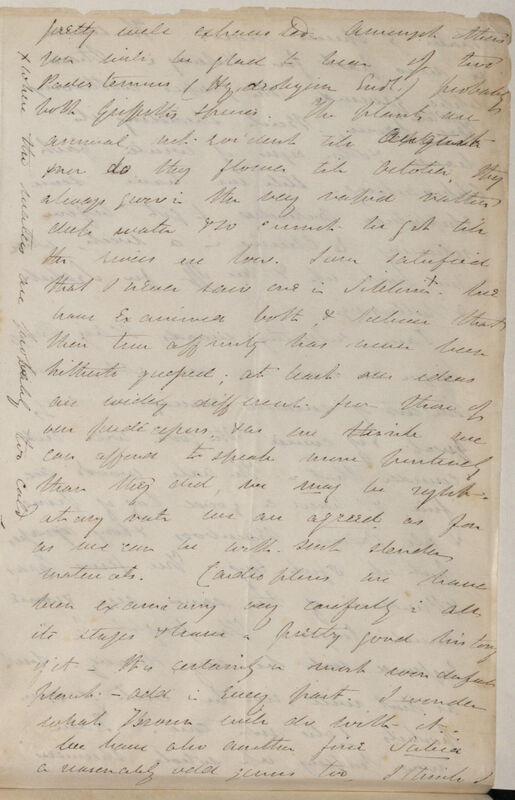 pretty well exhausted. Amongst others
you will be glad to hear of two
Podostemons (Hydrobryum Endl.) probably
both Griffiths species. The plants are
annual not evident till
nor do they flower till October. they
always grow in the very rapid
water & so cannot be got till
the rivers are low. I am satisfied
that I never saw one in Sikkim.+ We
have examined both & believe that
their true affinity has never been
hitherto guessed, at least our ideas
are widely different from those of
our predecessors. & as we think we
can afford to speak more
than they did, we may be right.
at any rate we are agreed as far
as we can be with such slender
materials. Cardiopteris we have
been examining very carefully in all
its stages & have a pretty good history
of it - It is certainly a most wonderful
plant - odd in every part. I wonder
what Brown will do with it.
We have also another fine
a reasonably odd genus too I think I
+ where the waters are probably too cold